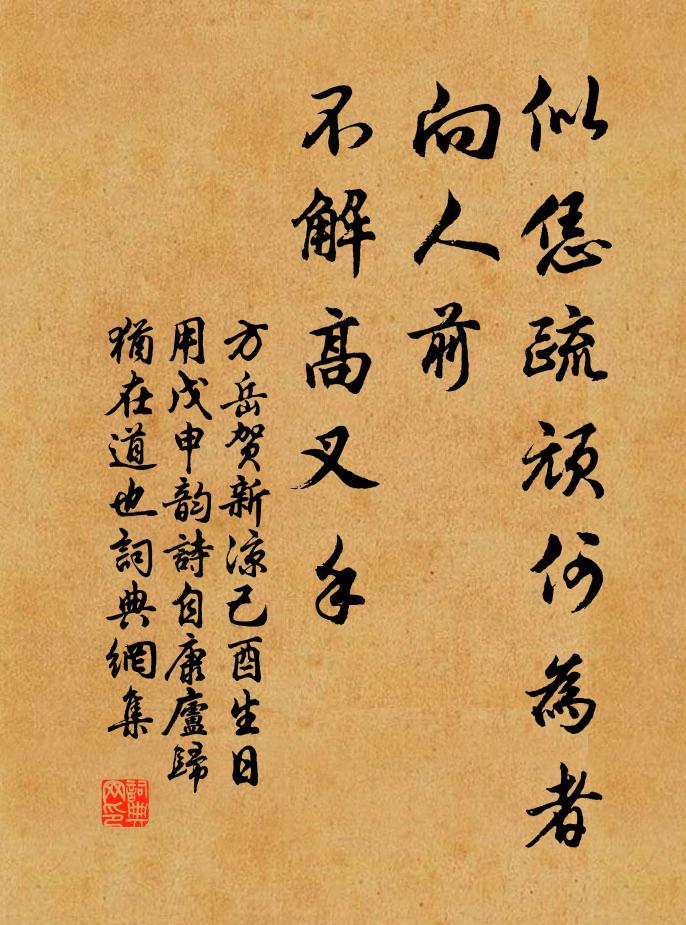 似恁疏頑何為者
向人前
不解高叉手
方岳賀新涼己酉生日
用戊申韵詩自康廬歸
猶在道也詞典網集
詞典網印